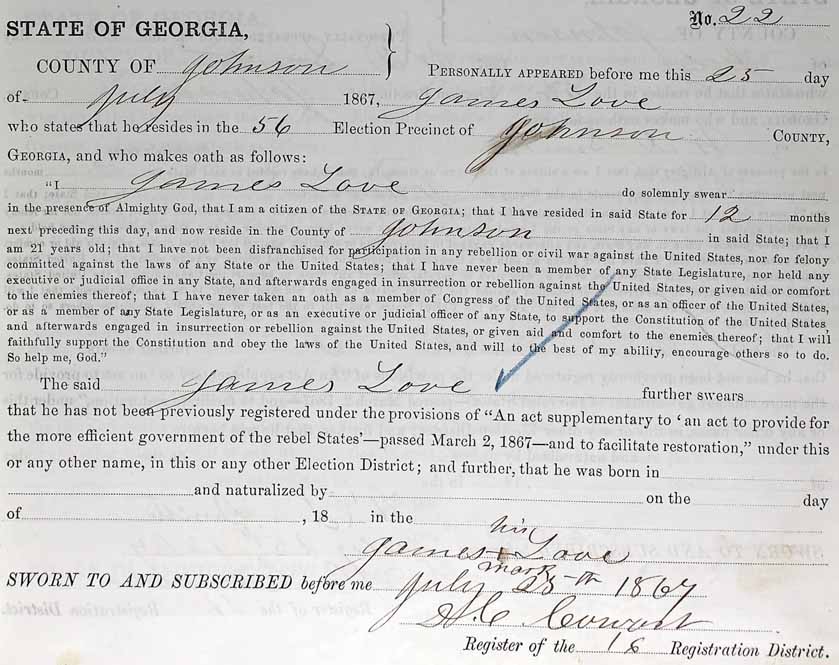 No. 22
STATE OF GEORGIA,
COUNTY OF Johnson } PERSONALLY APPEARED before me this 25 day
of July 1867, James Love
who states that he resides in the 56 Election Precinct of Johnson COUNTY,
GEORGIA, and who makes oath as follows:
"I James Love do solemnly swear
in the presence of Almighty God, that I am a citizen of the STATE OF GEORGIA; that I have resided in said State for 12 months
next preceding this day, and now reside in the County of Johnson in said State; that I
am 21 years old; that I have not been disfranchised for participation in any rebellion or civil war against the United States, nor for felony
committed against the laws of any State or the United States; that I have never been a member of any State Legislature, nor held any
executive or judicial office in any State, and afterwards engaged in insurrection or rebellion against the United States, or given aid or comfort
to the enemies thereof; that I have never taken an oath as a member of Congress of the United States, or as an officer of the United States,
or as a member of any State Legislature, or as an executive or judicial officer of any State, to support the Constitution of the United States
and afterwards engaged in insurrection or rebellion against the United States, or given aid and comfort to the enemies thereof; that I will
faithfully support the Constitution and obey the laws of the United States, and will to the best of my ability, encourage others so to do.
So help me, God."
The said James Love further swears
that he has not been previously registered under the provisions of "An act supplementary to 'an act to provide for
the more efficient government of the rebel States'—passed March 2, 1867—and to facilitate restoration," under this
or any other name, in this or any other Election District; and further, that he was born in
and naturalized by on the day
of , 18 in the
his
James + Love
mark
SWORN TO AND SUBSCRIBED before me July 25th 1867
A C Cowart
Register of the 16 Registration District.